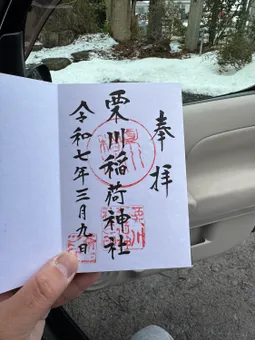 奉拝
栗川稲荷神社
令和七年三月九日